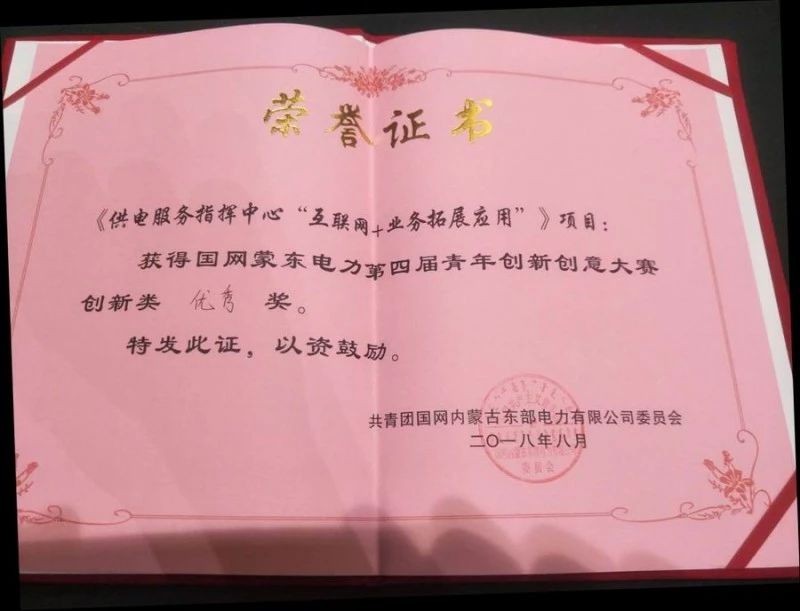 荣誉证书
《供电服务指挥中心“互联网+业务拓展应用”》项目：
获得国网蒙东电力第四届青年创新创意大赛
创新类 优秀 奖。
特发此证，以资鼓励。
共青团国网内蒙古东部电力有限公司委员会
二〇一八年八月
委员会